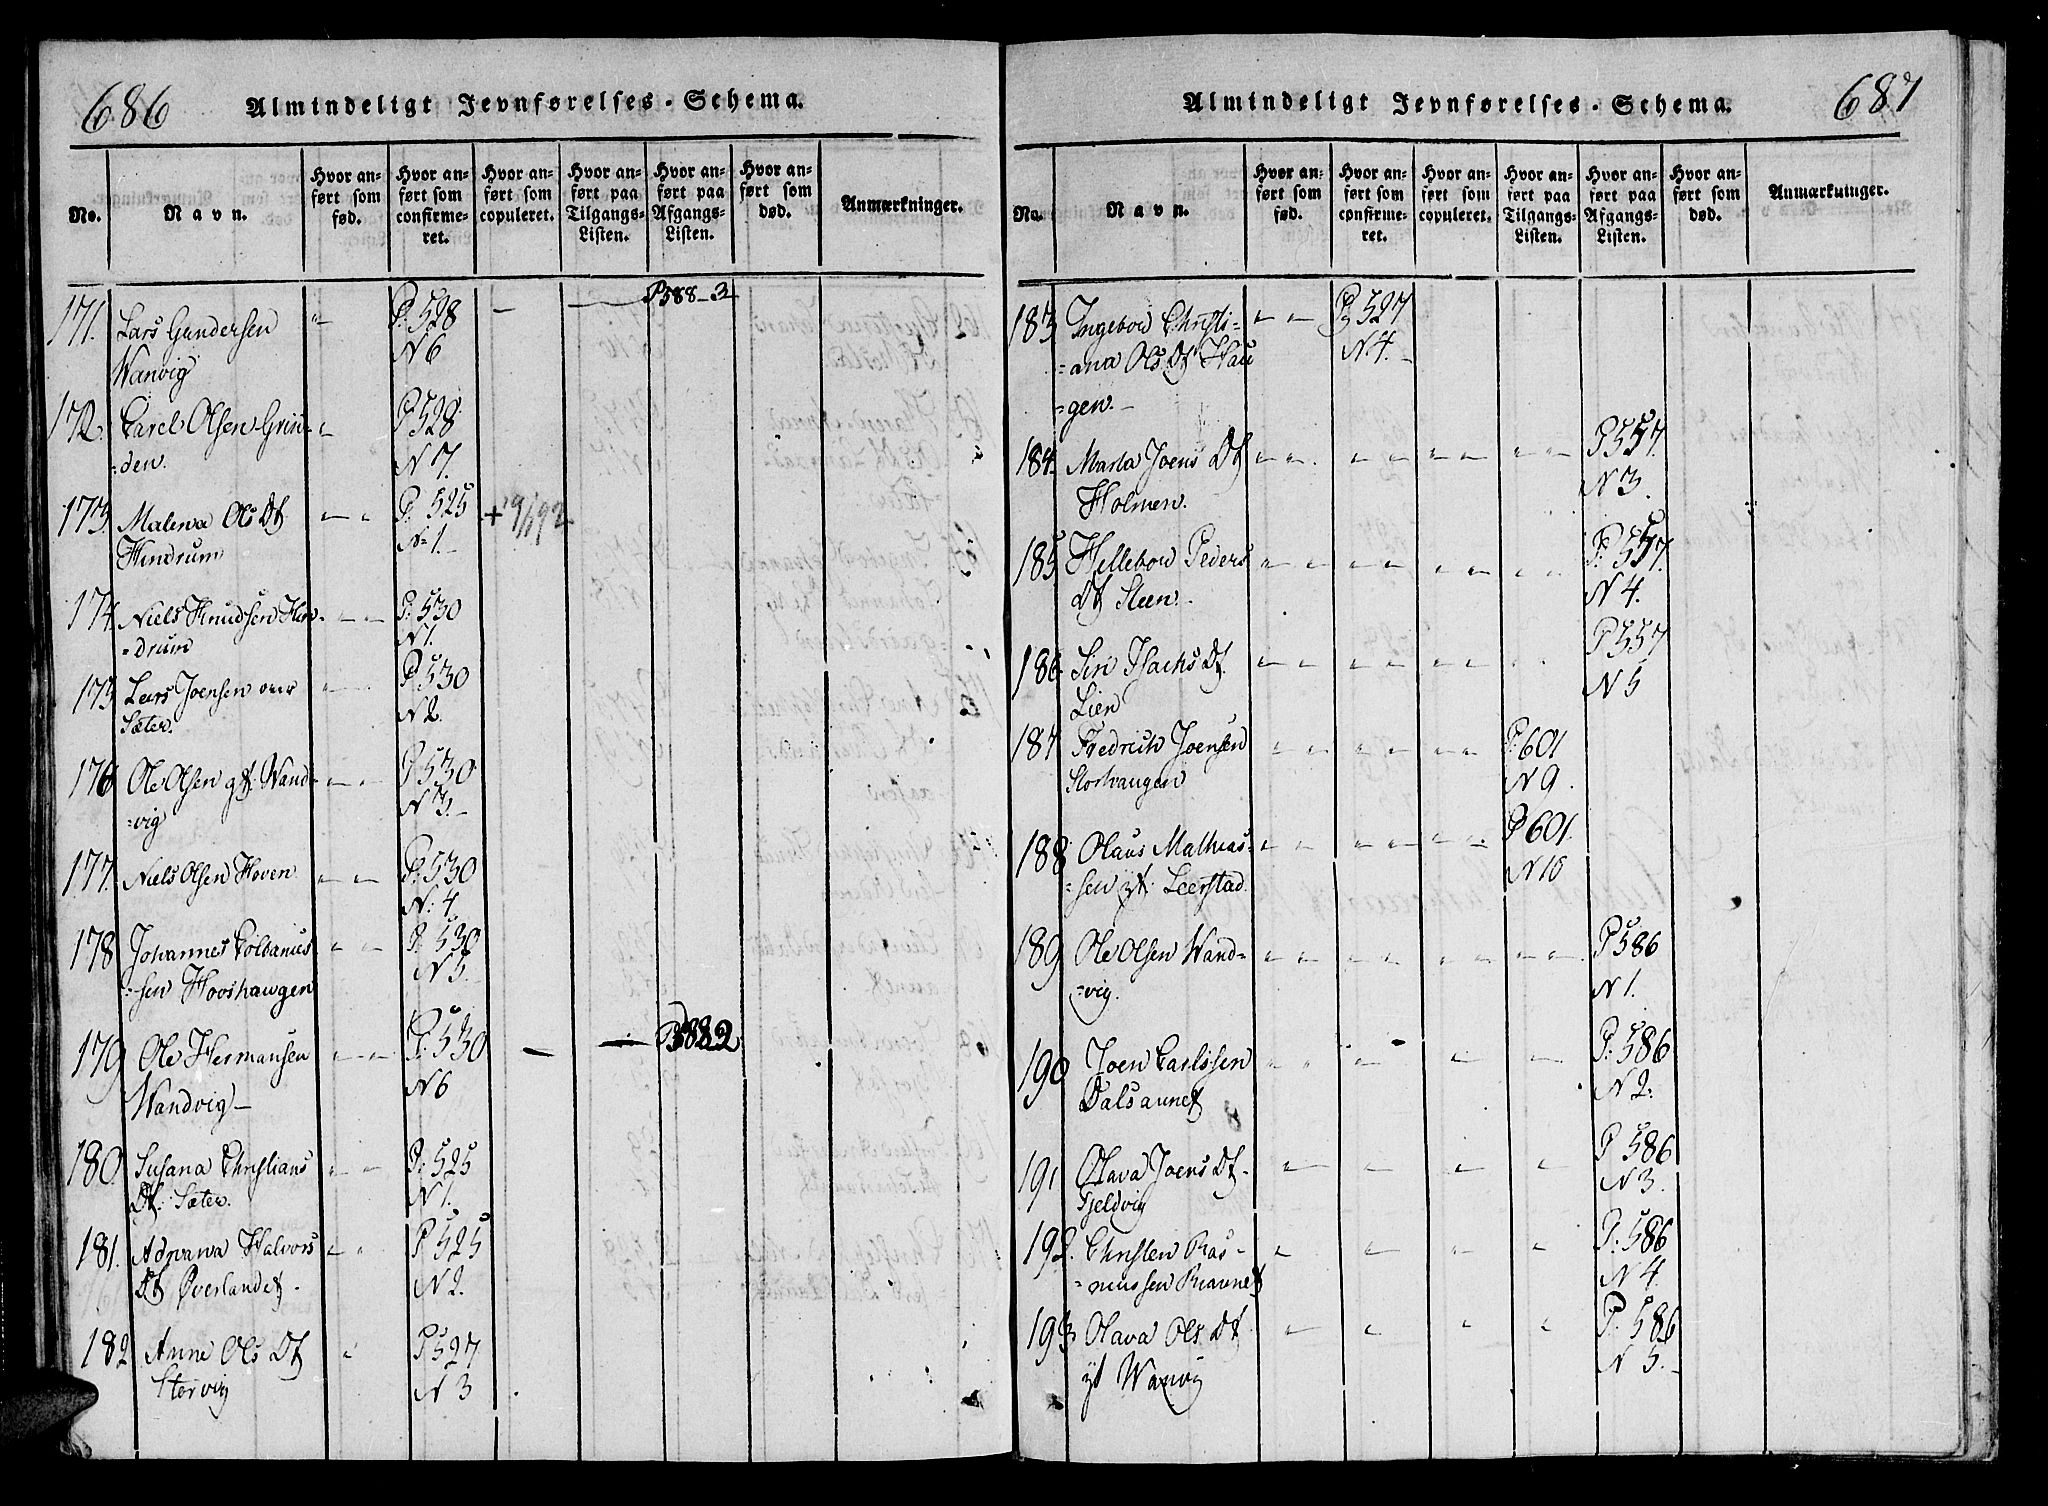 686 Almindeligt Jevnførelses-Schema.
No. Navn. Hvor anført som fød. Hvor anført som confirmeret. Hvor anført som copuleret. Hvor anført paa Tilgangs-Listen. Hvor anført paa Afgangs-Listen. Hvor anført som død. Anmærkninger.
171. Lars Gundersen " P: 528 — — P 588-2
Wanvig N 6
172. Carel Olsen Grin- " P 528
=den. N 7.
173. Malena Ols Df " " P: 525 +
Hindrum N 1.
174. Niels Knudsen Hin- " " P: 530
=drum N 1.
175 Lars Joensen " " P 530
Sæter. N 2.
176 Ole Olsen gt: Wand- " " P 530
=vig N 3.
177. Niels Olsen Hoven " " P: 530
N: 4
178 Johannes " " P: 530
=sen N 5.
179 Ole Hermansen " " P: 530 — —
Wandvig— N 6
180. Susana Christians " " P: 525
Df: Sæter. N 1.
181. Halvors " " P 525
Df Øverlandet. N 2.
182 Anne Ols Df " P 527
Storvig N 3
Almindeligt Jevnførelses-Schema. 687
No. Navn. Hvor anført som fød. Hvor anført som confirmeret. Hvor anført som copuleret. Hvor anført paa Tilgangs-Listen. Hvor anført paa Afgangs-Listen. Hvor anført som død. Anmærkninger.
183 Ingebor Christi= " " P 527
=ana Ols Df Hau N 4.
=gen.
184. Marta Joens Df " " " " " " " " P 557.
Holmen. N 3.
185 Hellebor Peders " " " " " " " " P: 557.
Df Steen. N 4.
186 Siri Isachs Df " " " " " " " " P 557
Lien N 5
187 Fredrich Joensen " " " " " " P: 601
Storhaugen N 9.
188 Olaus Mathias- " " " " " " P 601.
=sen yt: Leerstad. N 10
189. Ole Olsen Wand= " " " " " " " " P 586
=vig. N 1.
190 Joen Carlssen " " " " " P: 586
Dalsaunet N 2.
191 Olava Joens Df- " " " " P 586
Fjeldvig N 3.
192. Christen Ras- " " " " P: 586
=mussen N 4.
193 Olava Ols. Df " " " " P: 586
yt Wanvig N 5.